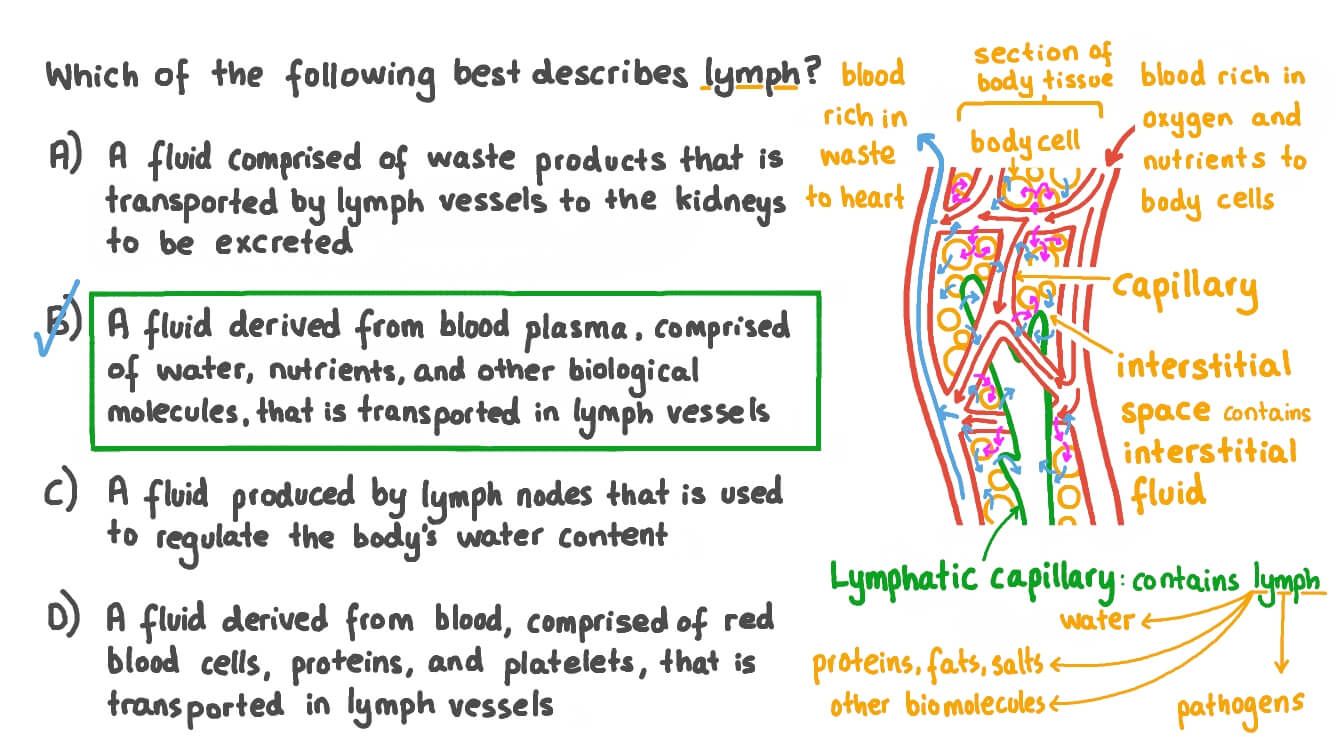 Which of the following best describes lymph?
A) A fluid comprised of waste products that is
transported by lymph vessels to the kidneys
to be excreted
B) A fluid derived from blood plasma, comprised
of water, nutrients, and other biological
molecules, that is transported in lymph vessels
C) A fluid produced by lymph nodes that is used
to regulate the body's water content
D) A fluid derived from blood, comprised of red
blood cells, proteins, and platelets, that is
transported in lymph vessels
blood
rich in
waste
to heart
section of
body tissue
body cell
blood rich in
oxygen and
nutrients to
body cells
capillary
interstitial
space contains
interstitial
fluid
Lymphatic capillary: contains lymph
water
proteins, fats, salts
other biomolecules
pathogens